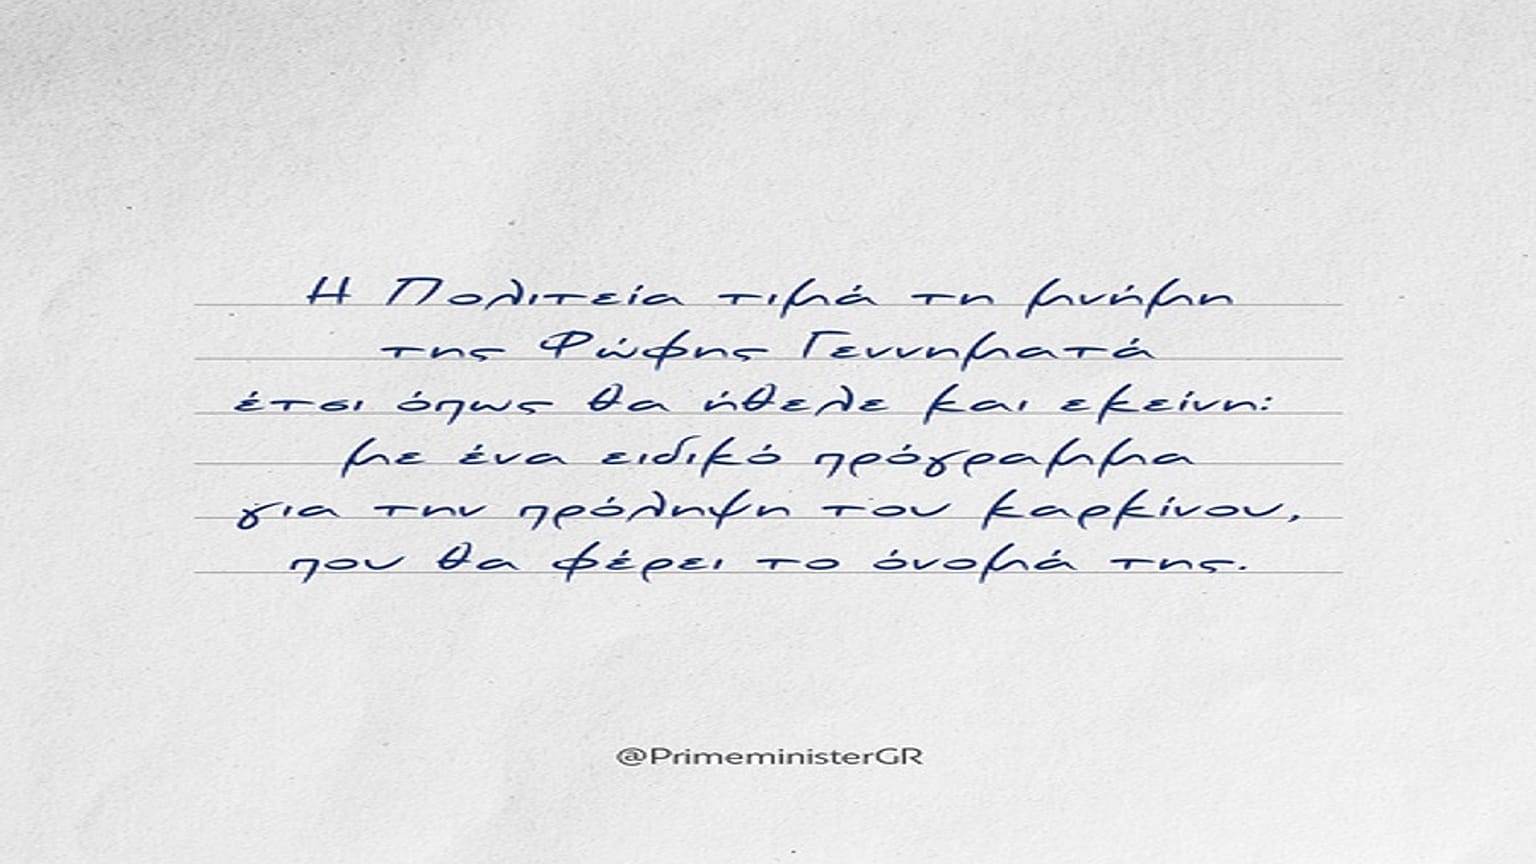 Η Πολιτεία τιμά τη μνήμη
της Φώφης Γεννηματά
έτσι όπως θα ήθελε και εκείνη:
με ένα ειδικό πρόγραμμα
για την πρόληψη του καρκίνου,
που θα φέρει το όνομά της.
@PrimeministerGR